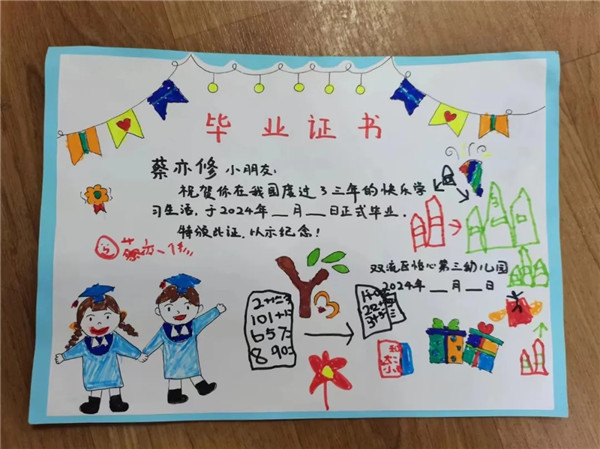 毕业证书
蔡亦修 小朋友:
祝贺你在我园度过了三年的快乐学
习生活,于2024年__月__日正式毕业。
特颁此证,以示纪念!
双流区怡心第三幼儿园
2024年__月__日